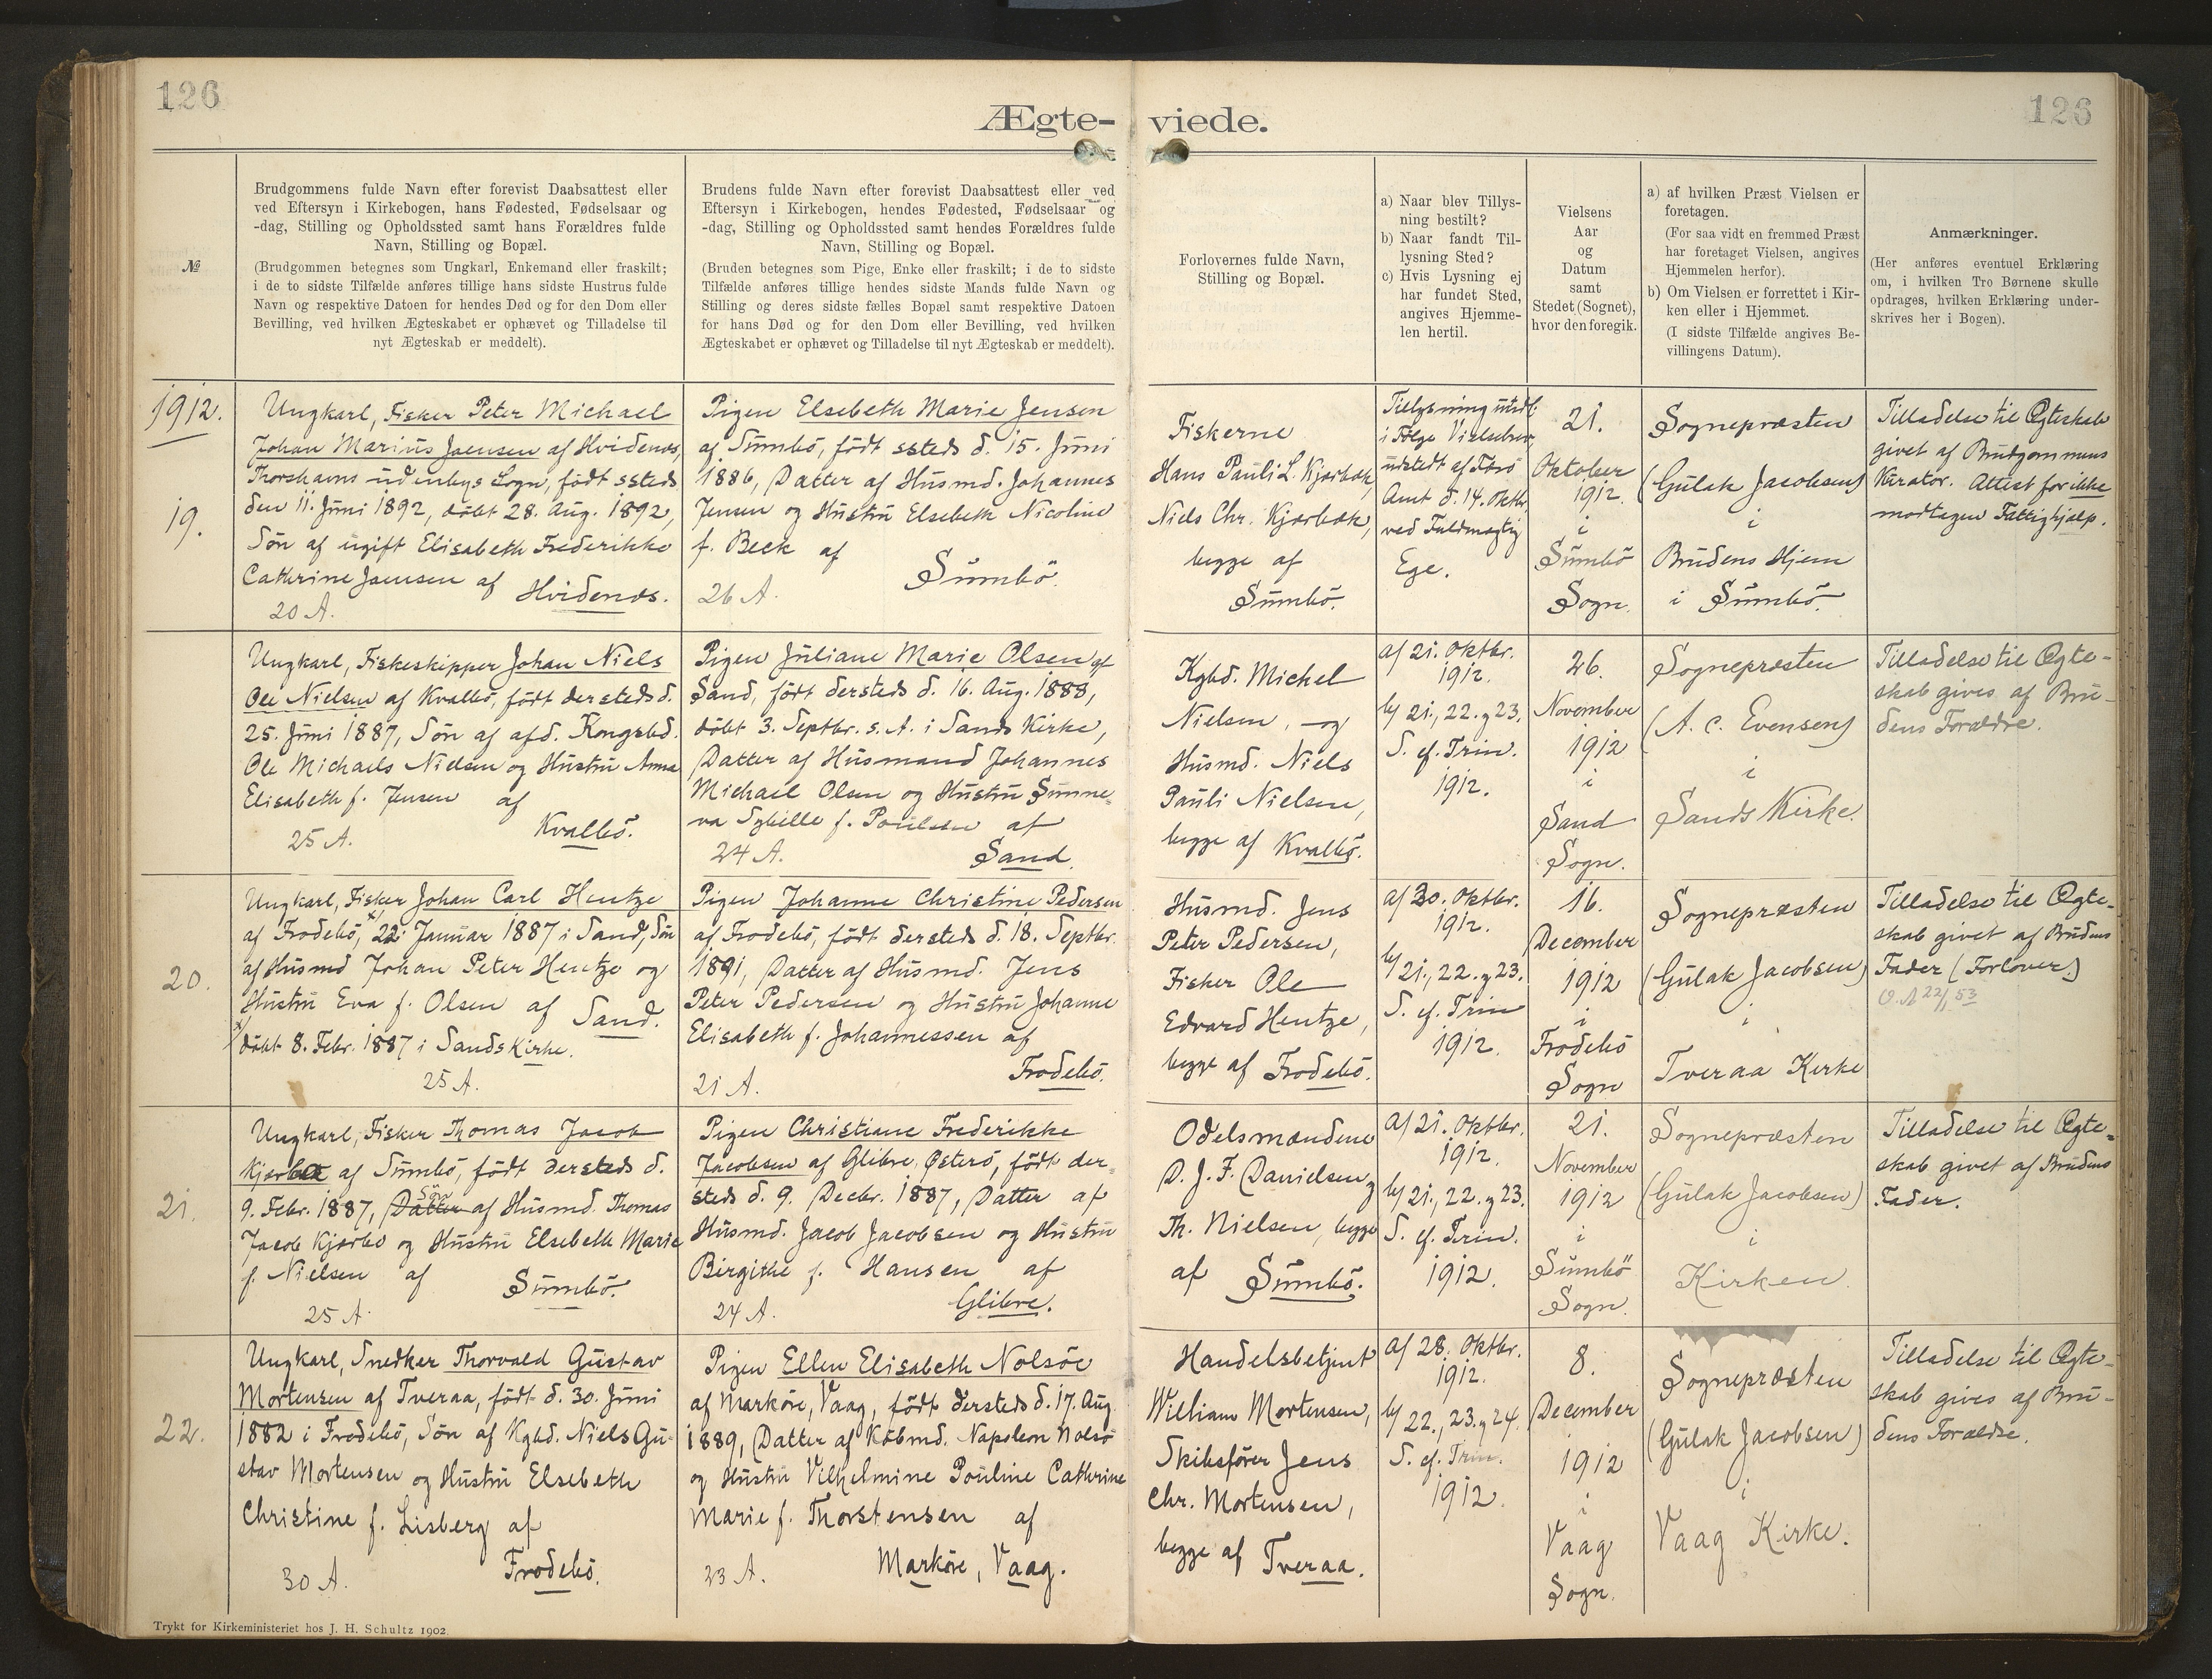 126
126
Ægte-
viede.
№
Brudgommens fulde Navn efter forevist Daabsattest eller
ved Eftersyn i Kirkebogen, hans Fødested, Fødselsaar og
-dag, Stilling og Opholdssted samt hans Forældres fulde
Navn, Stilling og Bopæl.
(Brudgommen betegnes som Ungkarl, Enkemand eller fraskilt;
i de to sidste Tilfælde anføres tillige hans sidste Hustrus fulde
Navn og respektive Datoen for hendes Død og for den Dom eller
Bevilling, ved hvilken Ægteskabet er ophævet og Tilladelse til
nyt Ægteskab er meddelt).
Brudens fulde Navn efter forevist Daabsattest eller ved
Eftersyn i Kirkebogen, hendes Fødested, Fødselsaar og
-dag, Stilling og Opholdssted samt hendes Forældres fulde
Navn, Stilling og Bopæl.
(Bruden betegnes som Pige, Enke eller fraskilt; i de to sidste
Tilfælde anføres tillige hendes sidste Mands fulde Navn og
Stilling og deres sidste fælles Bopæl samt respektive Datoen
for hans Død og for den Dom eller Bevilling, ved hvilken
Ægteskabet er ophævet og Tilladelse til nyt Ægteskab er meddelt).
Forlovernes fulde Navn,
Stilling og Bopæl.
a) Naar blev Tillys-
ning bestilt?
b) Naar fandt Til-
lysning Sted?
c) Hvis Lysning ej
har fundet Sted,
angives Hjemme-
len hertil.
Vielsens
Aar
og
Datum
samt
Stedet (Sognet),
hvor den foregik.
a) af hvilken Præst Vielsen er
foretagen.
(For saa vidt en fremmed Præst
har foretaget Vielsen, angives
Hjemmelen herfor).
b) Om Vielsen er forrettet i Kir-
ken eller i Hjemmet.
(I sidste Tilfælde angives Be-
villingens Datum).
Anmærkninger.
(Her anføres eventuel Erklæring
om, i hvilken Tro Børnene skulle
opdrages, hvilken Erklæring under-
skrives her i Bogen).
1912.
19.
Ungkarl, Fisker Peter Michael
Johan Marius Joensen af Hvidenæs,
Thorshavns udenbys Sogn, født ssteds
den 11. Juni 1892, døbt 28. Aug. 1892,
Søn af ugift Elisabeth Frederikke
Cathrine Joensen af Hvidenæs.
20 A.
Pigen Elsebeth Marie Jensen
af Sumbö, født ssteds d. 15. Juni
1886, Datter af Husmd. Johannes
Jensen og Hustru Elsebeth Nicoline
f. Beck af
Sumbö.
26 A.
Fiskerne
Hans Pauli L. Kjærbæk,
Niels Chr. Kjærbæk,
begge af
Sumbö.
Tillysning undl.
i Følge Vielsesbrev,
udstedt af Færø
Amt d. 14. Oktbr.
ved Fuldmægtig
Ege.
21.
Oktober
1912.
i
Sumbö
Sogn.
Sognepræsten
(Gulak Jacobsen)
i
Brudens Hjem
i Sumbö.
Tilladelse til Ægteskab
givet af Brudgommens
Kurator. Attest for ikke
modtagen Fattighjælp.
Ungkarl, Fiskeskipper Johan Niels
Ole Nielsen af Kvalbö, født dersteds d.
25. Juni 1887, Søn af afd. Kongsbd.
Ole Michaels Nielsen og Hustru Anna
Elisabeth f. Jensen af
Kvalbö.
25 A.
Pigen Juliane Marie Olsen af
Sand, født dersteds d. 16. Aug. 1888,
døbt 3. Septbr. s. A. i Sands Kirke,
Datter af Husmand Johannes
Michael Olsen og Hustru Sunne-
va Sybille f. Poulsen af
24 A.
Sand.
Kgbd. Michel
Nielsen, og
Husmd. Niels
Pauli Nielsen,
begge af Kvalbö.
a/ 21. Oktbr.
1912.
b/ 21., 22. og 23.
S. ef. Trin.
1912.
26.
November
1912
i
Sand
Sogn.
Sognepræsten
(A. C. Evensen)
i
Sands Kirke.
Tilladelse til Ægte-
skab gives af Bru-
dens Forældre.
20.
Ungkarl, Fisker Johan Carl Hentze
af Frodebö, x/ 22. Januar 1887 i Sand, Søn
af Husmd Johan Peter Hentze og
Hustru Eva f. Olsen af Sand.
x/ døbt 8. Febr. 1887 i Sands Kirke.
25 A.
Pigen Johanne Christine Pedersen
af Frodebö, født dersteds d. 18. Septbr.
1891, Datter af Husmd. Jens
Peter Pedersen og Hustru Johanne
Elisabeth f. Johannessen af
21 A.
Frodebö.
Husmd. Jens
Peter Pedersen,
Fisker Ole
Edvard Hentze,
begge af Frodebö.
a/ 30. Oktbr.
1912.
b/ 21., 22. og 23.
S. ef. Trin
1912.
16.
December
1912
i
Frodebö
Sogn
Sognepræsten
(Gulak Jacobsen)
i
Tveraa Kirke
Tilladelse til Ægte-
skab givet af Brudens
Fader (Forlover.)
22/11 53
21.
Ungkarl, Fisker Thomas Jacob
Kjærbo af Sumbö, født dersteds d.
9. Febr. 1887, Datter Søn af Husmd. Thomas
Jacob Kjærbo og Hustru Elsebeth Marie
f. Nielsen af
Sumbö.
25 A.
Pigen Christiane Frederikke
Jacobsen af Glibre, Østerö, født der-
steds d. 9. Decbr. 1887, Datter af
Husmd. Jacob Jacobsen og Hustru
Birgithe f. Hansen af
24 A.
Glibre.
Odelsmændene
D. J. F. Danielsen og
Th. Nielsen, begge
af Sumbö.
a/ 21. Oktbr.
1912.
b/ 21., 22. og 23.
S. ef. Trin.
1912.
21.
November
1912
i
Sumbö
Sogn.
Sognepræsten
(Gulak Jacobsen)
i
Kirken.
Tilladelse til Ægte-
skab givet af Brudens
Fader.
22.
Ungkarl, Snedker Thorvald Gustav
Mortensen af Tveraa, født d. 30. Juni
1882 i Frodebö, Søn af Kgbd. Niels Gu-
stav Mortensen og Hustru Elsebeth
Christine f. Lisberg af
30 A.
Frodebö.
Pigen Ellen Elisabeth Nolsöe
af Marköre, Vaag, født dersteds d. 17. Aug.
1889, Datter af Købmd. Napoleon Nolsö
og Hustru Vilhelmine Pouline Cathrine
Marie f. Thorstensen af
23 A.
Marköre, Vaag.
Handelsbetjent
William Mortensen,
Skibsfører Jens
Chr. Mortensen,
begge af Tveraa.
a/ 28. Oktbr.
1912.
b/ 22., 23. og 24.
S. ef. Trin.
1912.
8.
December
1912
i
Vaag
Sogn.
Sognepræsten
(Gulak Jacobsen)
i
Vaag Kirke.
Tilladelse til Ægte-
skab gives af Bru-
dens Forældre.
Trykt for Kirkeministeriet hos J. H. Schultz 1902